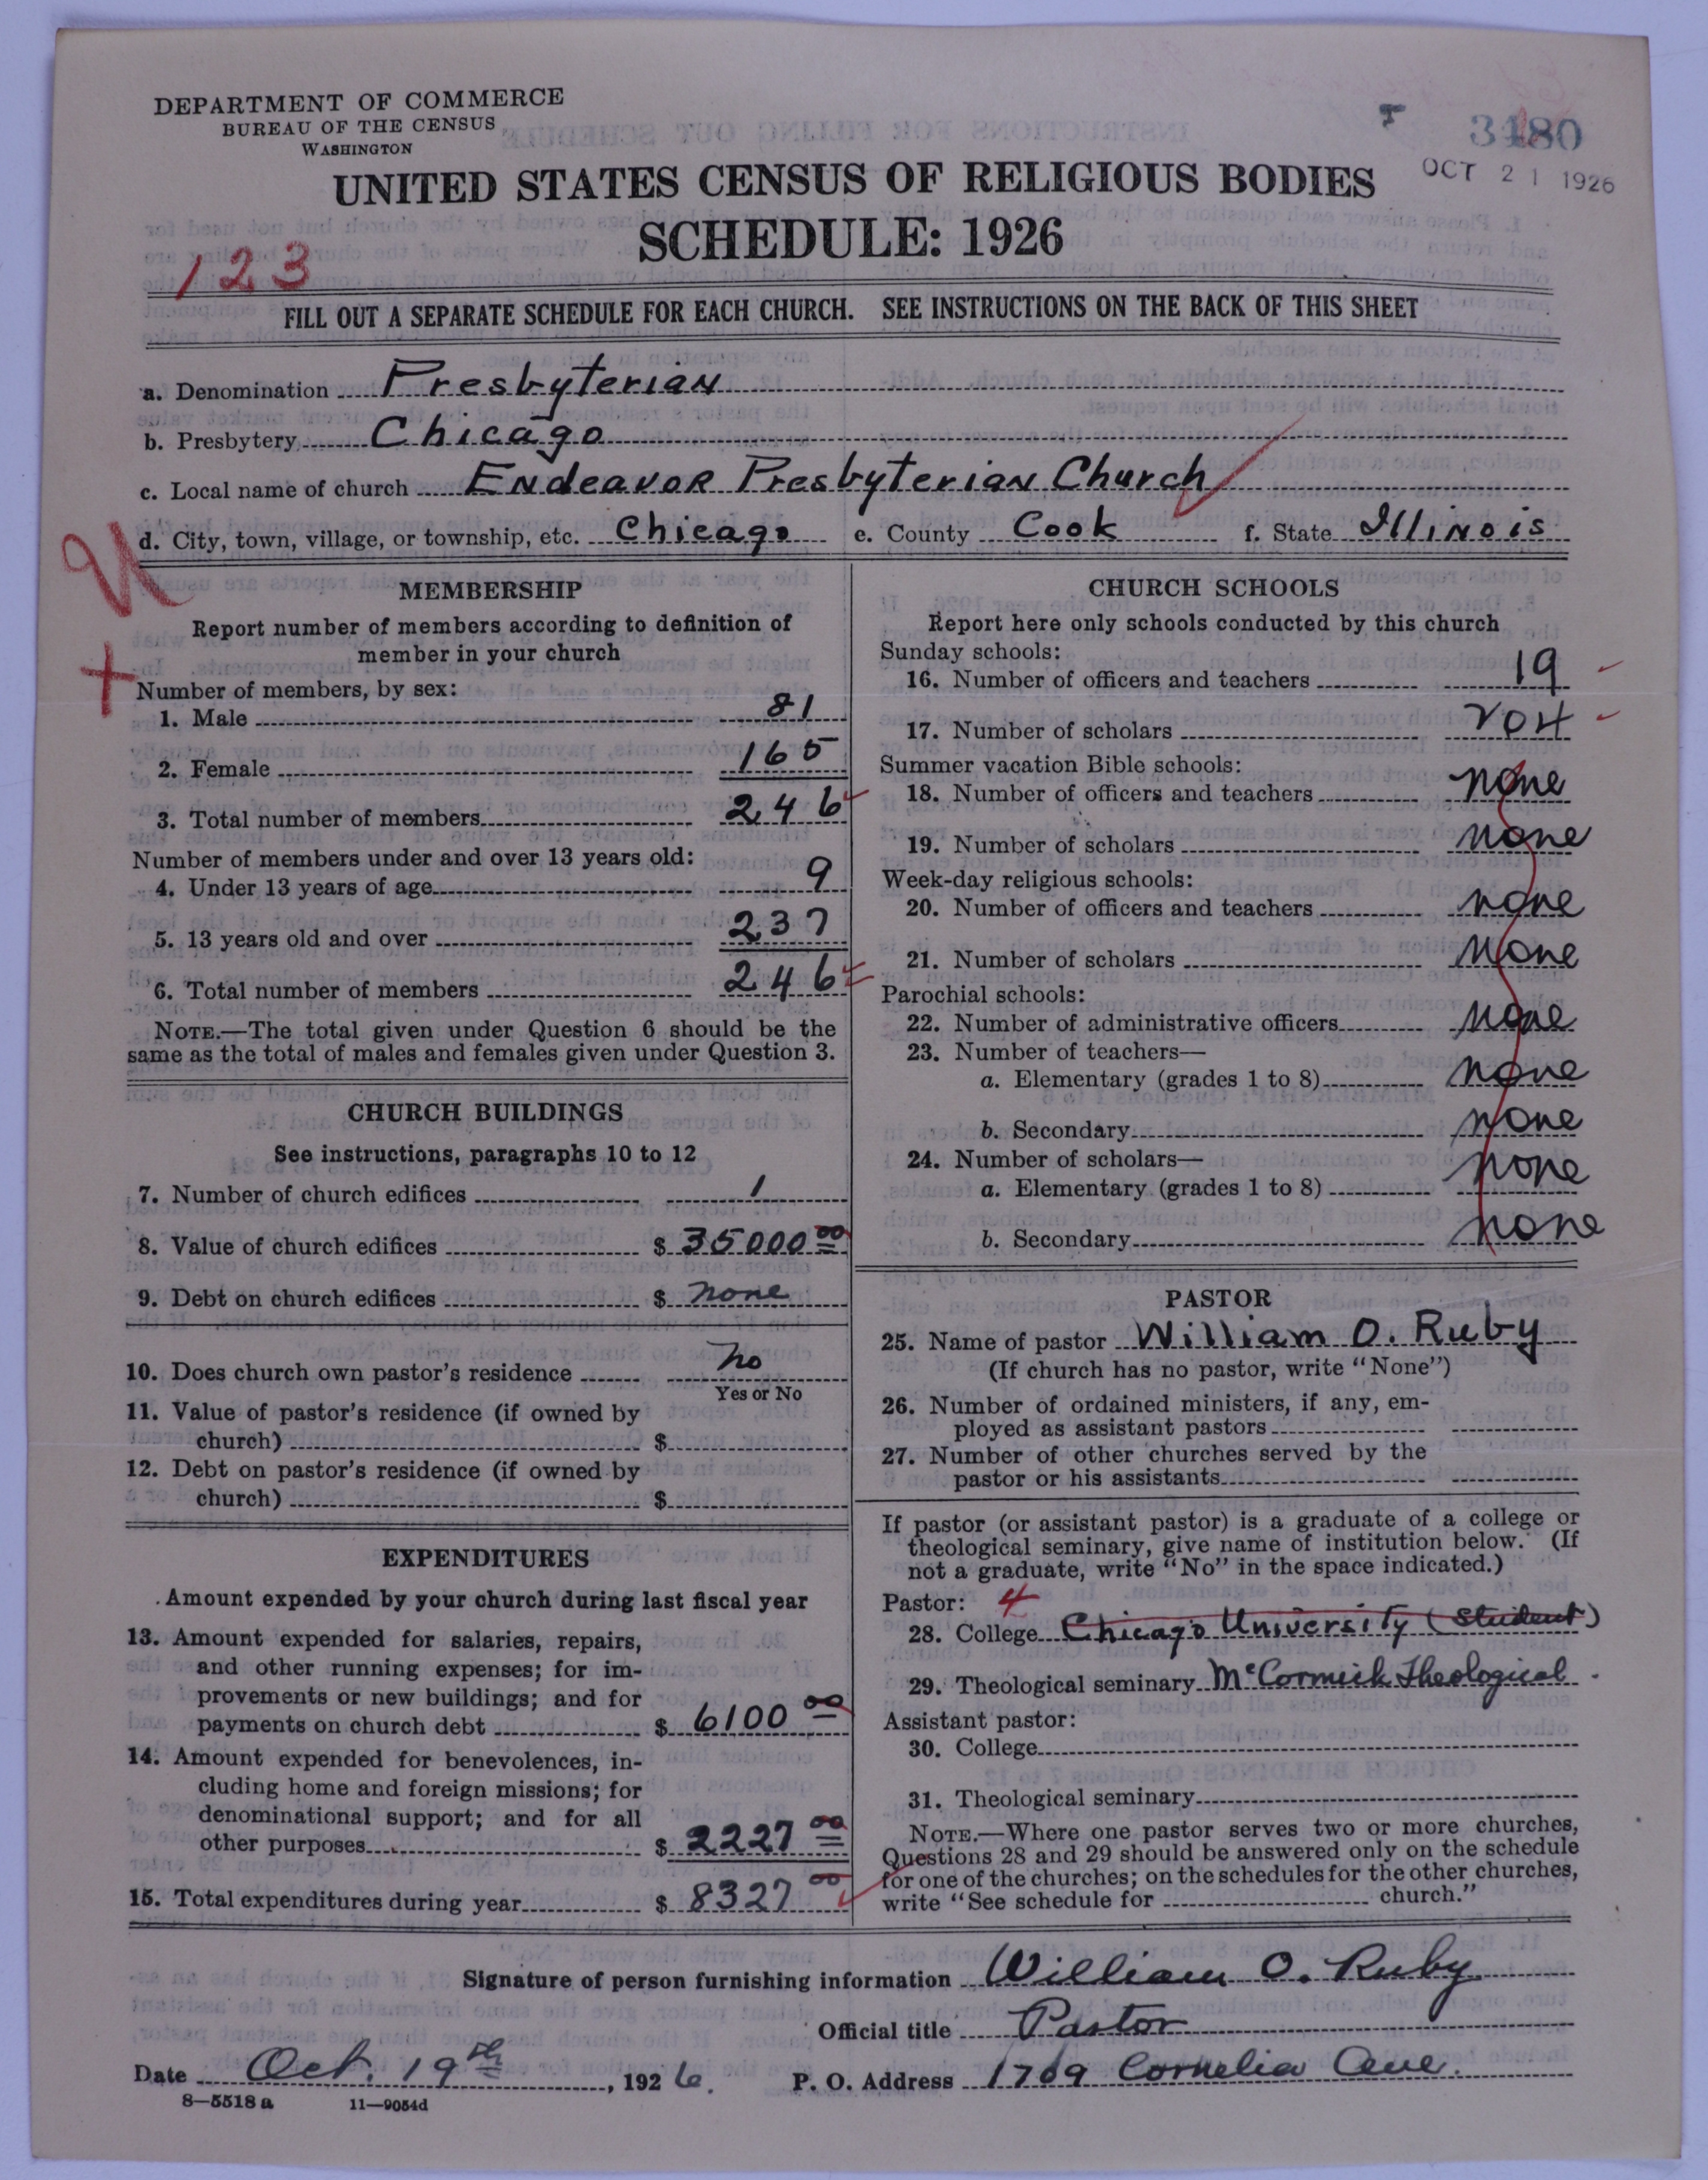 DEPARTMENT OF COMMERCE
BUREAU OF THE CENSUS
WASHINGTON
3180
OCT 21 1926
UNITED STATES CENSUS OF RELIGIOUS BODIES
SCHEDULE: 1926
123
FILL OUT A SEPARATE SCHEDULE FOR EACH CHURCH. SEE INSTRUCTIONS ON THE BACK OF THIS SHEET
a. Denomination Presbyterian
b. Presbytery Chicago
c. Local name of church Endeavor Presbyterian Church
d. City, town, village, or township, etc. Chicago e. County Cook f. State Illinois
MEMBERSHIP
Report number of members according to definition of
member in your church
Number of members, by sex:
1. Male 81
2. Female 165
3. Total number of members 246
Number of members under and over 13 years old:
4. Under 13 years of age 9
5. 13 years old and over 237
6. Total number of members 246
NOTE.—The total given under Question 6 should be the
same as the total of males and females given under Question 3.
CHURCH BUILDINGS
See instructions, paragraphs 10 to 12
7. Number of church edifices 1
8. Value of church edifices $ 35000 00
9. Debt on church edifices $ none
10. Does church own pastor's residence no
Yes or No
11. Value of pastor's residence (if owned by
church) $
12. Debt on pastor's residence (if owned by
church) $
EXPENDITURES
Amount expended by your church during last fiscal year
13. Amount expended for salaries, repairs,
and other running expenses; for im-
provements or new buildings; and for
payments on church debt $ 6100 00
14. Amount expended for benevolences, in-
cluding home and foreign missions; for
denominational support; and for all
other purposes $ 2227 00
15. Total expenditures during year $ 8327 00
CHURCH SCHOOLS
Report here only schools conducted by this church
Sunday schools:
16. Number of officers and teachers 19
17. Number of scholars 204
Summer vacation Bible schools:
18. Number of officers and teachers none
19. Number of scholars none
Week-day religious schools:
20. Number of officers and teachers none
21. Number of scholars none
Parochial schools:
22. Number of administrative officers none
23. Number of teachers—
a. Elementary (grades 1 to 8) none
b. Secondary none
24. Number of scholars—
a. Elementary (grades 1 to 8) none
b. Secondary none
PASTOR
25. Name of pastor William O. Ruby
(If church has no pastor, write "None")
26. Number of ordained ministers, if any, em-
ployed as assistant pastors
27. Number of other churches served by the
pastor or his assistants
If pastor (or assistant pastor) is a graduate of a college or
theological seminary, give name of institution below. (If
not a graduate, write "No" in the space indicated.)
Pastor: 4
28. College Chicago University (Student)
29. Theological seminary McCormick Theological
Assistant pastor:
30. College
31. Theological seminary
NOTE.—Where one pastor serves two or more churches,
Questions 28 and 29 should be answered only on the schedule
for one of the churches; on the schedules for the other churches,
write "See schedule for church."
Signature of person furnishing information William O. Ruby
Official title Pastor
Date Oct. 19th, 1926. P. O. Address 1769 Cornelia Ave.
8—5518 a 11—9054d